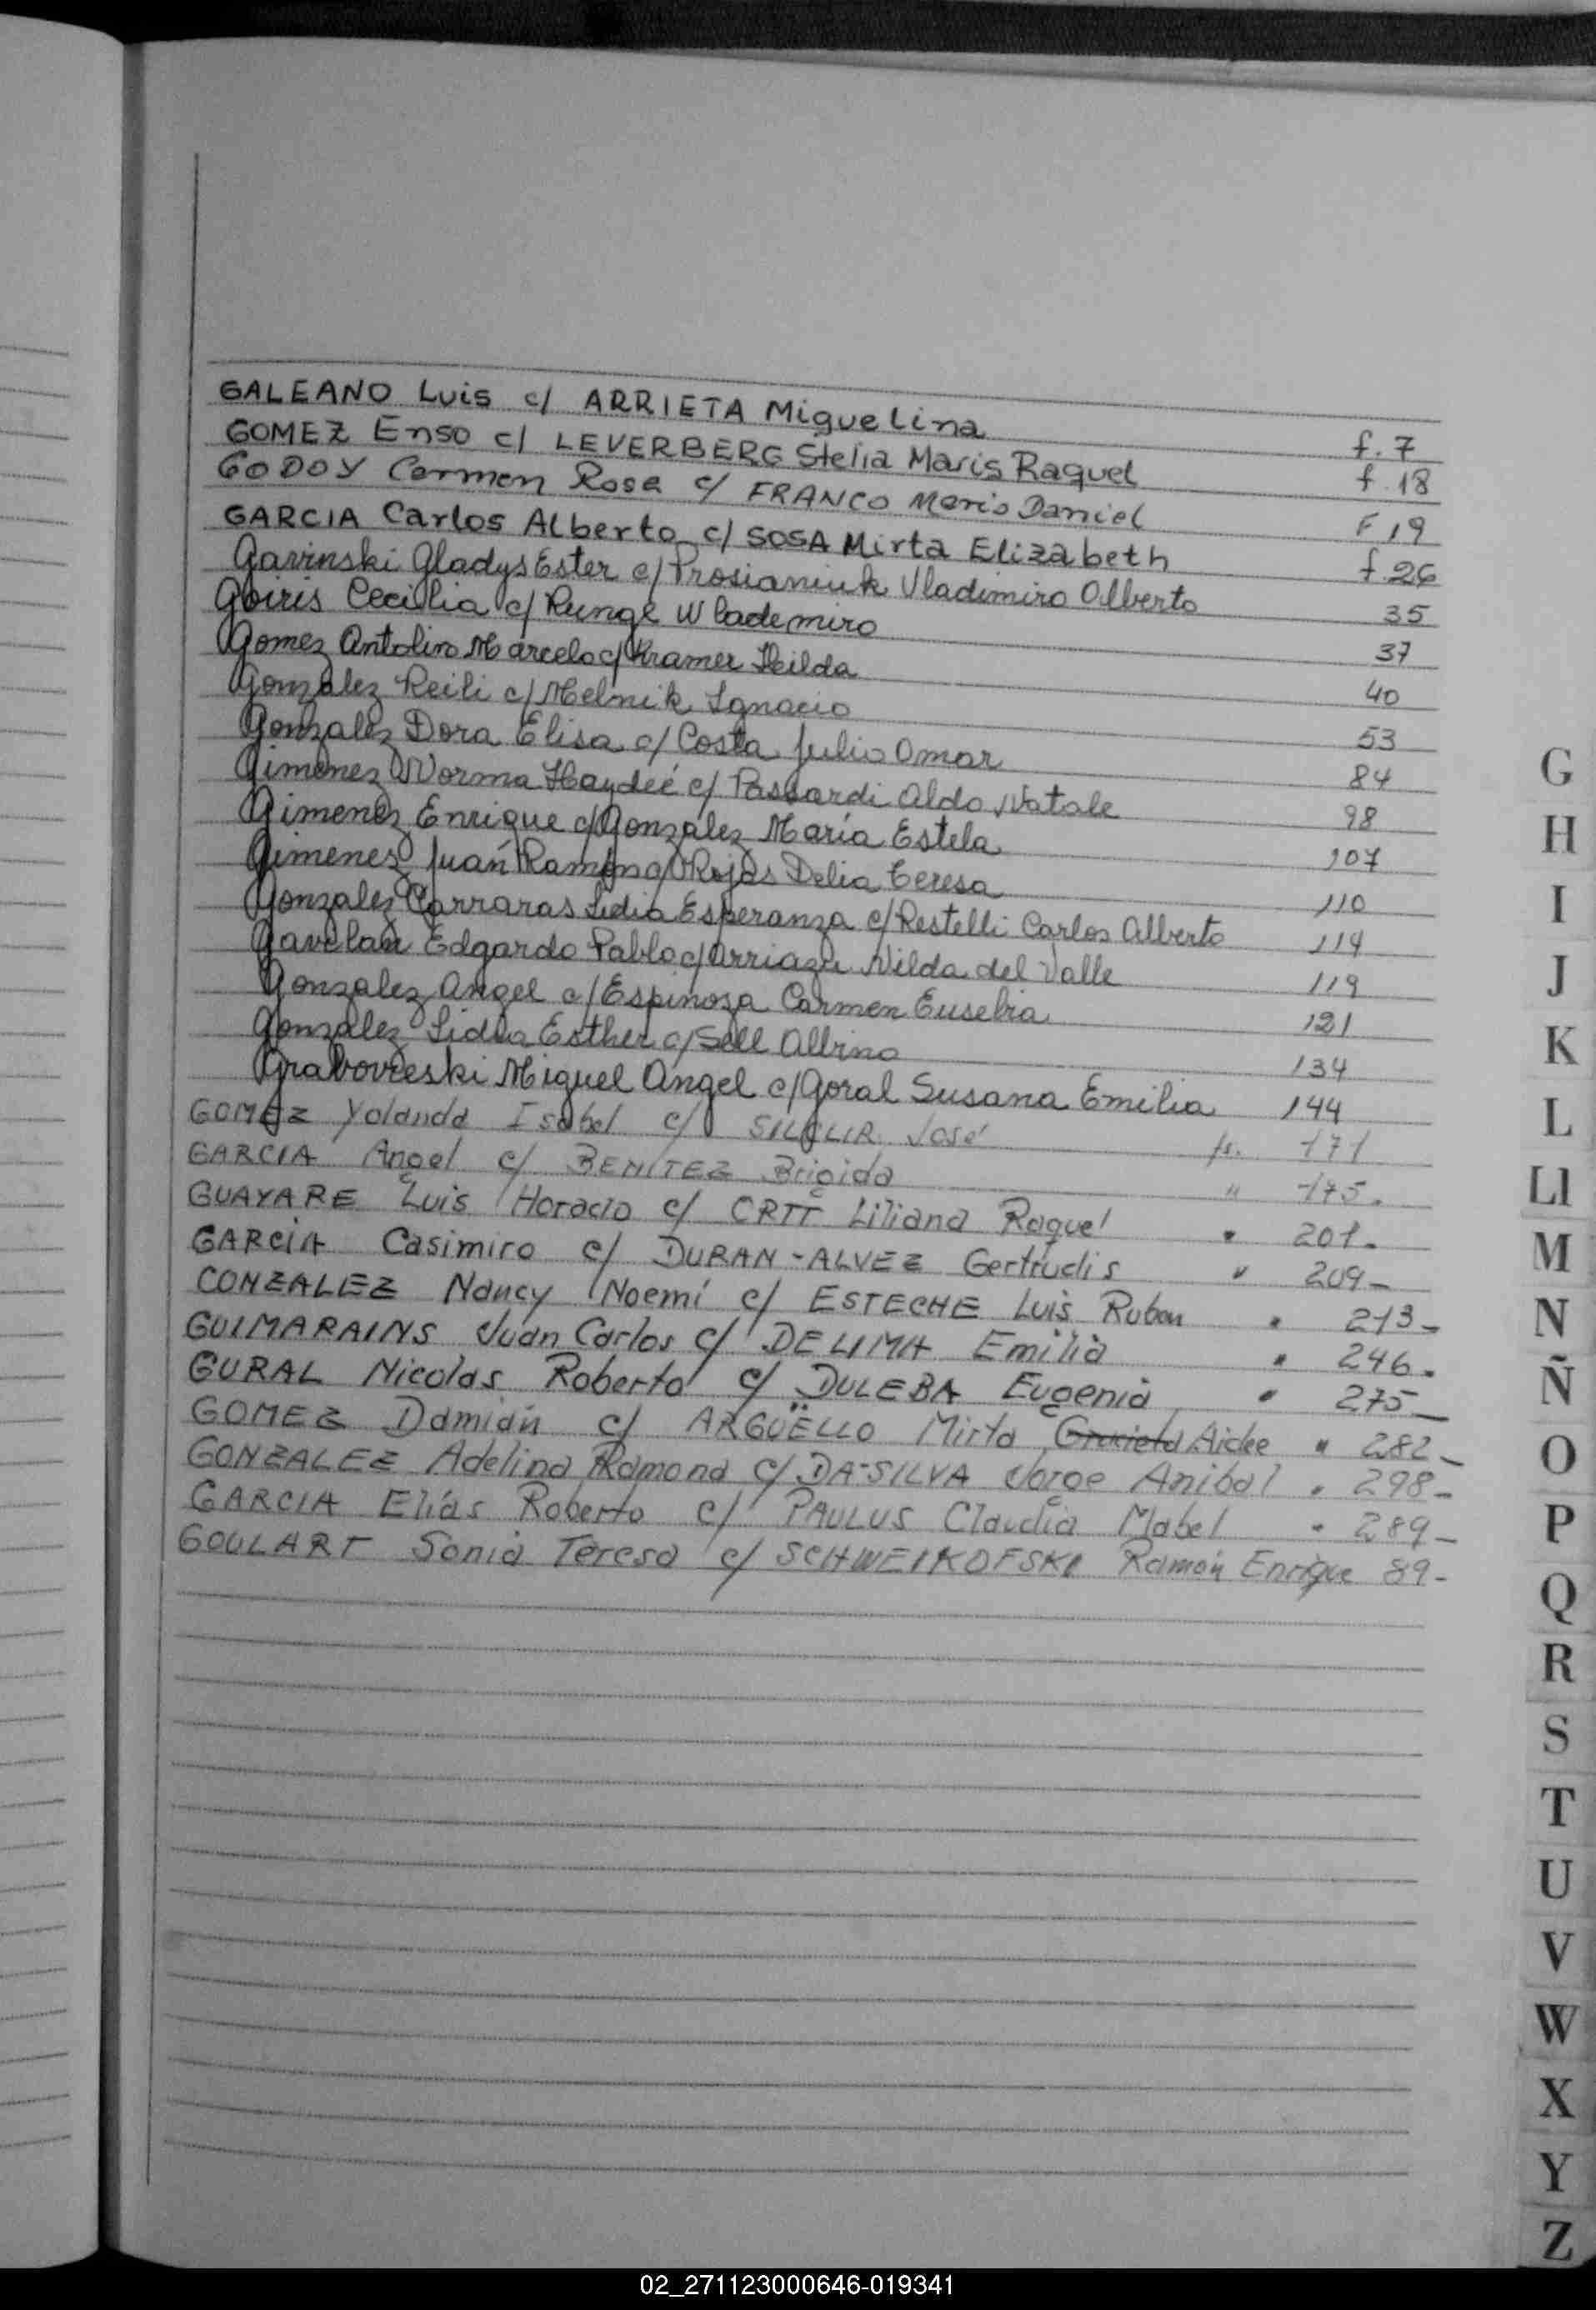 GALEANO Luis c/ ARRIETA Miguelina f. 7
GOMEZ Enso c/ LEVERBERG Stelia Maris Raquel f. 18
GODOY Carmen Rosa c/ FRANCO Mario Daniel F 19
GARCIA Carlos Alberto c/ SOSA Mirta Elizabeth f. 26
Gavinski Gladys Ester c/ Prosianiuk Vladimiro Alberto 35
Goiris Cecilia c/ Runge Wlademiro 37
Gomez Antolin Marcelo c/ Kramer Hilda 40
Gonzalez Reili c/ Melnik Ignacio 53
Gonzalez Dora Elisa c/ Costa Julio Omar 84
Gimenez Norma Haydeé c/ Passardi Aldo Natale 98
Gimenez Enrique c/ Gonzalez María Estela 107
Gimenez Juan Ramon c/ Rojas Delia Teresa 110
Gonzalez Carraras Lidia Esperanza c/ Restelli Carlos Alberto 114
Gavelan Edgardo Pablo c/ Arriazu Nilda del Valle 119
Gonzalez Angel c/ Espinoza Carmen Eusebia 121
Gonzalez Lidia Esther c/ Sell Albino 134
Grabovieski Miguel Angel c/ Goral Susana Emilia 144
GOMEZ Yolanda Isabel c/ José fs. 171
GARCIA Angel c/ BENITEZ Brigida " 175.
GUAYARE Luis Horacio c/ ORTT Liliana Raquel " 201.
GARCIA Casimiro c/ DURAN-ALVEZ Gertrudis " 209-
CONZALEZ Nancy Noemí c/ ESTECHE Luis Ruben " 213-
GUIMARAINS Juan Carlos c/ DELIMA Emilia " 246.
GURAL Nicolas Roberto c/ DULEBA Eugenia " 275-
GOMEZ Damián c/ ARGÜELLO Mirta Graciela Aidee " 282-
GONZALEZ Adelina Ramona c/ DA-SILVA Jorge Anibal " 298-
GARCIA Elías Roberto c/ PAULUS Claudia Mabel " 289-
GOULART Sonia Teresa c/ SCHWEIKOFSKI Ramón Enrique 89-
G
H
I
J
K
L
Ll
M
N
Ñ
O
P
Q
R
S
T
U
V
W
X
Y
Z
02_271123000646-019341